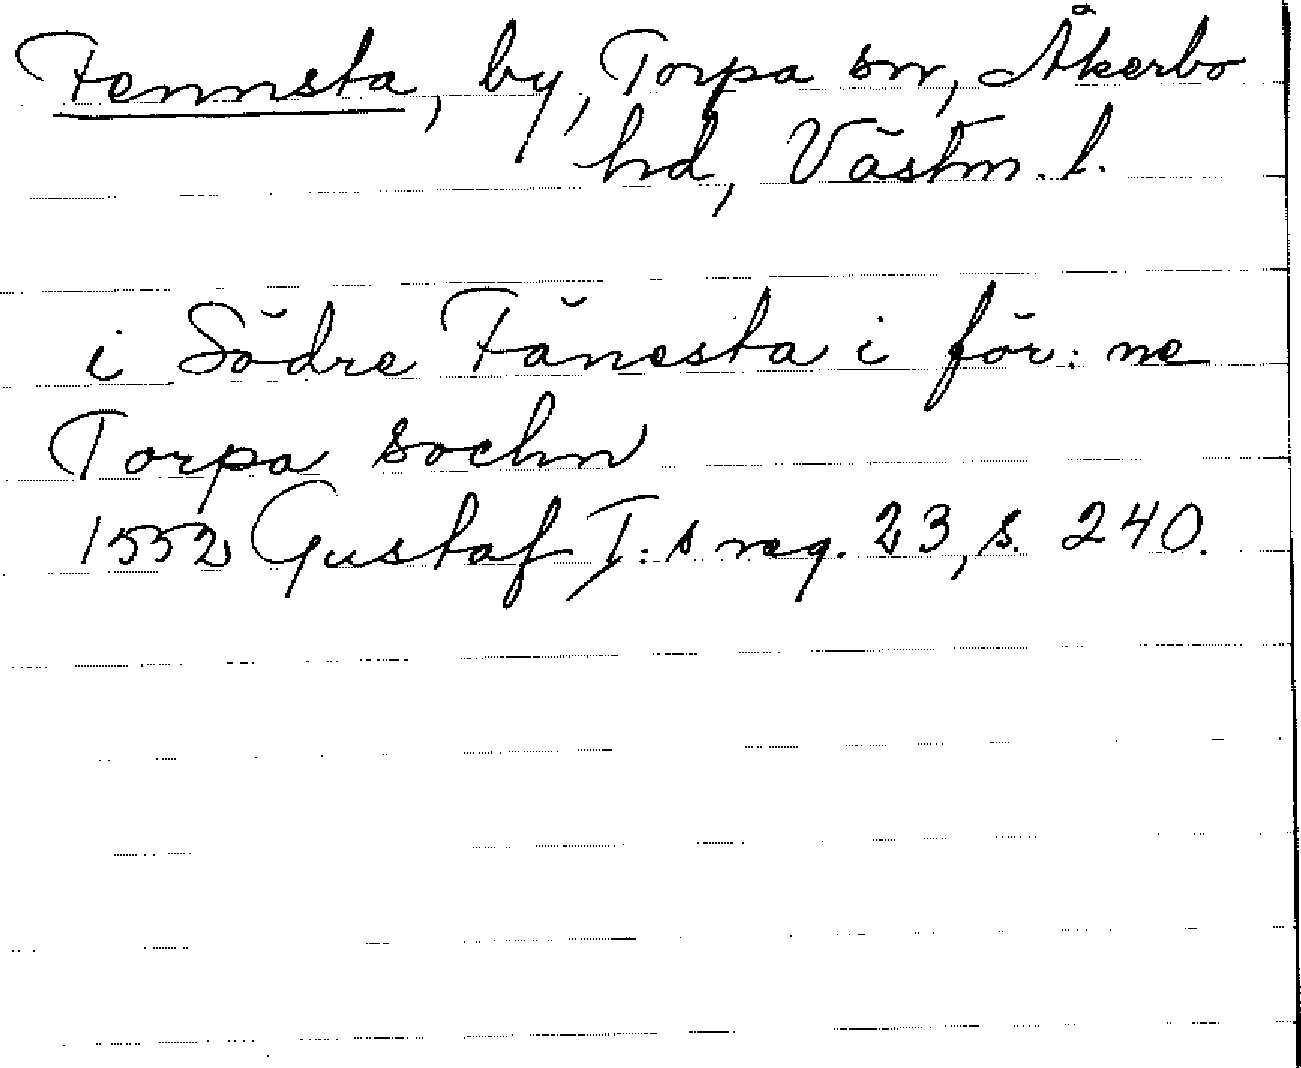 Fennsta, by, Torpa sn, Åkerbo
hd, Västm. l.
i Södre Fänesta i för: ne
Torpa sochn
1552 Gustaf I: s reg. 23, s. 240.